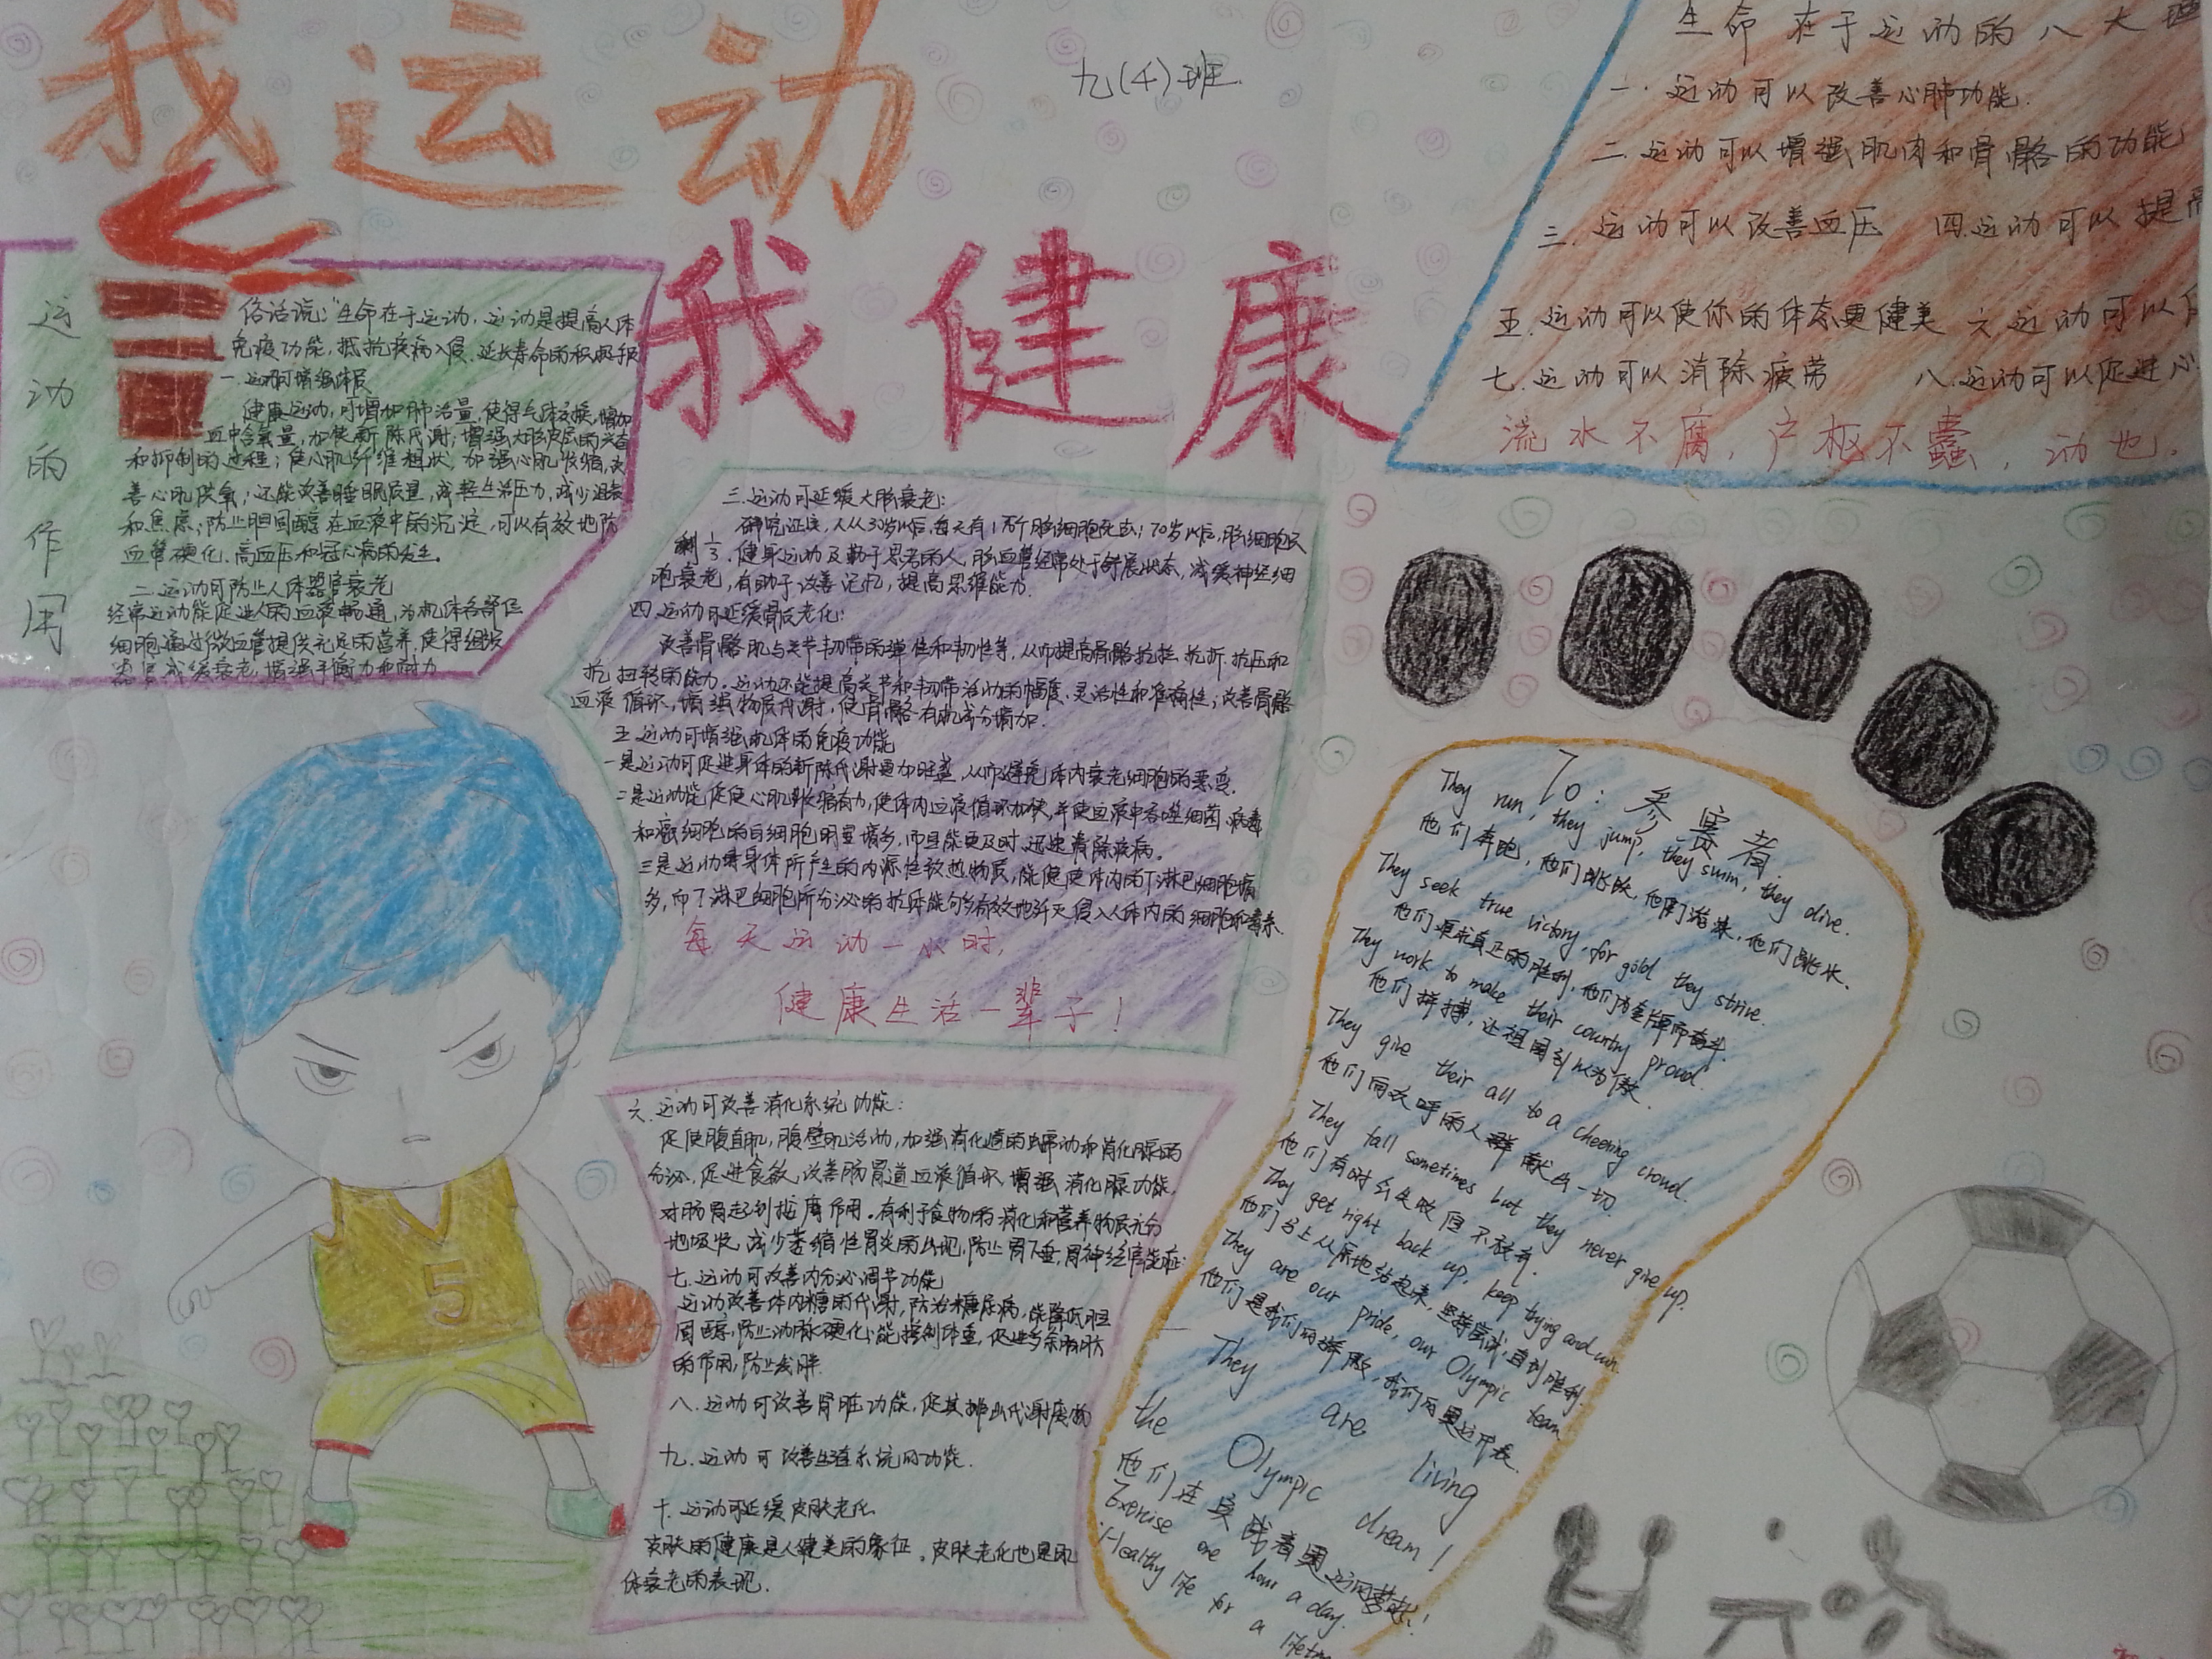 我运动
九(4)班
我健康
生命在于运动的八大理
一.运动可以改善心肺功能.
二.运动可以增强肌肉和骨骼的功能
三.运动可以改善血压 四.运动可以提高
五.运动可以使你的体态更健美 六.运动可以
七.运动可以消除疲劳 八.运动可以促进心
流水不腐,户枢不蠹,动也.
运动的作用
俗话说:“生命在于运动,运动是提高人体
免疫功能,抵抗疾病入侵.延长寿命的积极手段
一.运动可增强体质
健康运动,可增加肺活量,使得气体交换,增加
血中含氧量,加快新陈代谢;增强大脑皮层的兴奋
和抑制的过程;使心肌纤维粗状,加强心肌收缩,改
善心肌供氧;还能改善睡眠质量,减轻生活压力,减少沮丧
和焦虑;防止胆固醇在血液中的沉淀,可以有效地防
血管硬化、高血压和冠心病的发生.
二.运动可防止人体器官衰老
经常运动能促进人的血液畅通,为机体各部位
细胞通过微血管提供充足的营养,使得组织
减缓衰老,增强平衡力和耐力
三.运动可延缓大脑衰老:
研究证实,人从30岁以后,每天有1万个脑细胞死去;70岁以后,脑细胞只
剩1/3.健身运动及勤于思考的人,脑血管经常处于舒展状态,减缓神经细
胞衰老,有助于改善记忆,提高思维能力.
四.运动可延缓骨质老化:
改善骨骼肌与关节韧带的弹性和韧性等,从而提高骨骼抗拉.抗折.抗压和
抗扭转的能力.运动还能提高关节和韧带活动的幅度、灵活性和准确性;改善骨骼
血液循环,增强物质代谢,使骨骼有机成分增加.
五.运动可增强机体的免疫功能
一是运动可促进身体的新陈代谢更加旺盛,从而避免体内衰老细胞的恶变.
二是运动能促使心肌收缩有力,使体内血液循环加快,并使血液中吞噬细菌、病毒
和癌细胞的白细胞明显增多,而且能更及时、迅速清除疾病。
三是运动时身体所产生的内源性致热物质,能促使体内的T淋巴细胞增
多,而T淋巴细胞所分泌的抗体能够有效地歼灭侵入人体内的细胞和毒素.
每天运动一小时,
健康生活一辈子!
六.运动可改善消化系统功能:
促使腹直肌,腹壁肌活动,加强消化道的蠕动和消化腺的
分泌,促进食欲,改善肠胃道血液循环,增强消化腺功能,
对肠胃起到按摩作用.有利于食物的消化和营养物质充分
地吸收,减少萎缩性胃炎的出现,防止胃下垂,胃神经官能症.
七.运动可改善内分泌调节功能
运动改善体内糖的代谢,防治糖尿病,能降低胆
固醇,防止动脉硬化;能控制体重,促进多余脂肪
的作用,防止我胖.
八.运动可改善肾脏功能,促其排出代谢废物
九.运动可改善生殖系统的功能.
十.运动可延缓皮肤老化
皮肤的健康是人健美的象征.皮肤老化也是肌
体衰老的表现.
To:参赛者.
They run, they jump, they swim, they dive.
他们奔跑,他们跳跃,他们游泳,他们跳水.
They seek true victory, for gold they strive.
他们追求真正的胜利,他们为金牌而奋斗.
They work to make their country proud.
他们拼搏,让祖国引以为傲.
They give their all to a cheering crowd.
他们向欢呼的人群献出一切.
They fall sometimes but they never give up,
他们有时会失败但不放弃.
They get right back up, keep trying and win.
他们马上从原地站起来,坚持尝试,直到胜利.
They are our pride, our Olympic team
他们是我们的骄傲,我们的奥运代表.
They are living
the Olympic dream!
他们在实践着奥运的梦想!
Exercise one hour a day.
Healthy life for a
5